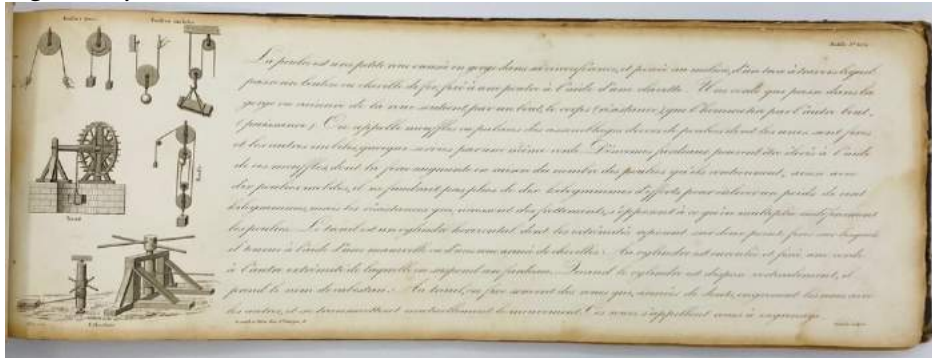 Poulies fixes.
Poulies mobiles.
La poulie est une petite roue creusée en gorge dans sa circonférence, et percée au milieu, d'un trou à travers lequel
passe un boulon ou cheville de fer, fixé à une poutre à l'aide d'une clavette. Une corde que passe dans la
gorge ou rainure de la roue soutient, par un bout, le corps (résistance) que l'homme tire par l'autre bout
(puissance). On appelle mouffles ou palans des assemblages divers de poulies dont les unes sont fixes
et les autres mobiles, quoique servies par une même corde. D'énormes fardeaux peuvent être élevés à l'aide
de ces mouffles, dont la force augmente en raison du nombre des poulies qu'ils contiennent, ainsi avec
dix poulies mobiles, il ne faudrait pas plus de dix kilogrammes d'efforts pour enlever un poids de cent
kilogrammes, mais les résistances qui naissent des frottements, s'opposent à ce qu'on multiplie indéfiniment
les poulies. Le treuil est un cylindre horizontal dont les extrémités reposent sur deux points fixes sur lesquels
il tourne à l'aide d'une manivelle ou d'une roue armée de chevilles. Au cylindre est enroulée et fixée, une corde
à l'autre extrémité de laquelle on suspend un fardeau. Quand le cylindre est disposé verticalement, il
prend le nom de cabestan. Au treuil, on fixe souvent des roues qui, armées de dents, engrènent les unes avec
les autres, et se transmettent mutuellement le mouvement. Ces roues s'appellent roues à engrenage.
Moufle
Treuil
Cabestan